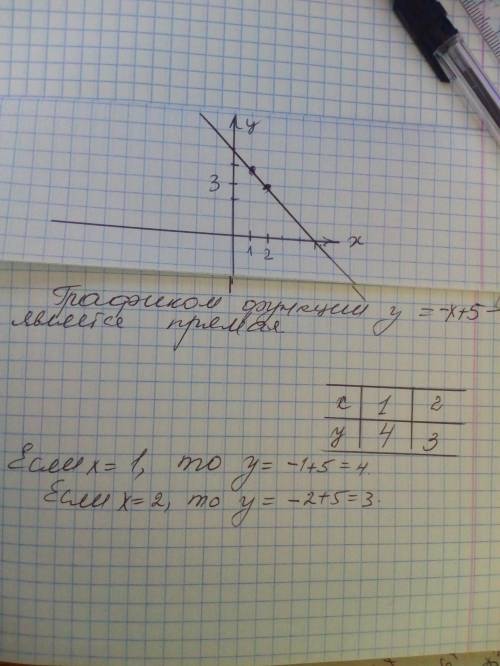 y
3
x
1 2
Графиком функции y = -x+5 -
является прямая
x 1 2
y 4 3
Если x = 1, то y = -1+5 = 4.
Если x = 2, то y = -2+5 = 3.